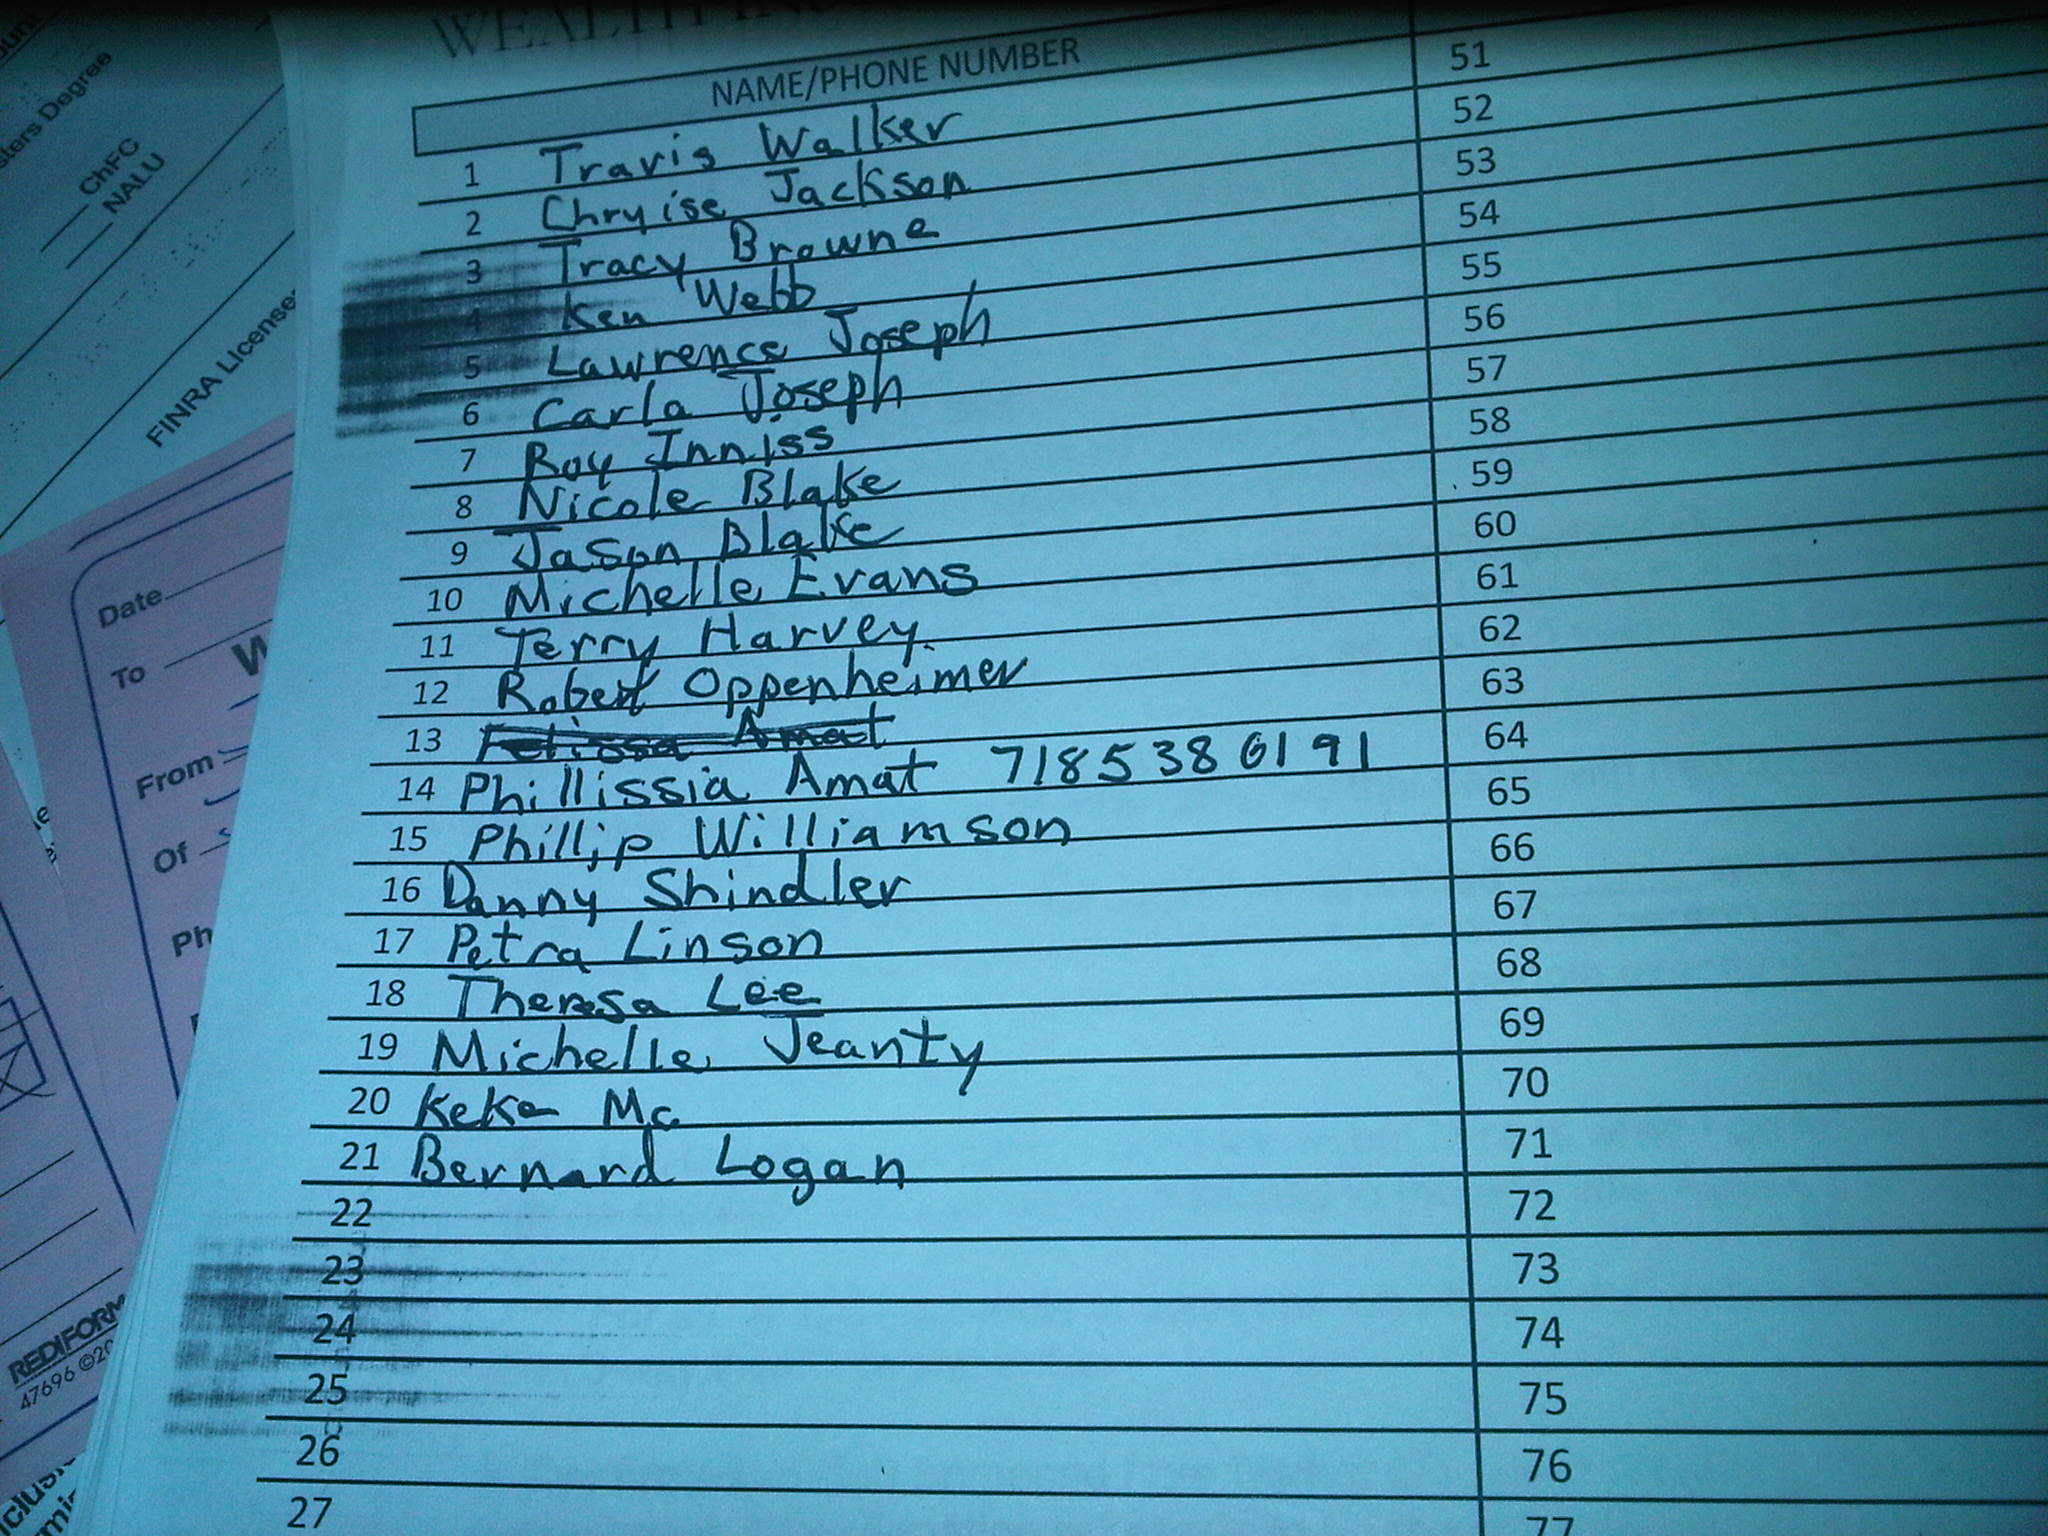 WEALTH
NAME/PHONE NUMBER
1 Travis Walker
2 Chryise Jackson
3 Tracy Browne
4 Ken Webb
5 Lawrence Joseph
6 Carla Joseph
7 Roy Inniss
8 Nicole Blake
9 Jason Blake
10 Michelle Evans
11 Terry Harvey
12 Robert Oppenheimer
13 Felissa Amat
14 Phillissia Amat 7185380191
15 Phillip Williamson
16 Danny Shindler
17 Petra Linson
18 Theresa Lee
19 Michelle Jeanty
20 Keke Mc
21 Bernard Logan
22
23
24
25
26
27
51
52
53
54
55
56
57
58
59
60
61
62
63
64
65
66
67
68
69
70
71
72
73
74
75
76
77
Degree
ChFC
NALU
FINRA
Date
To
From
Of
REDIFORM
47696